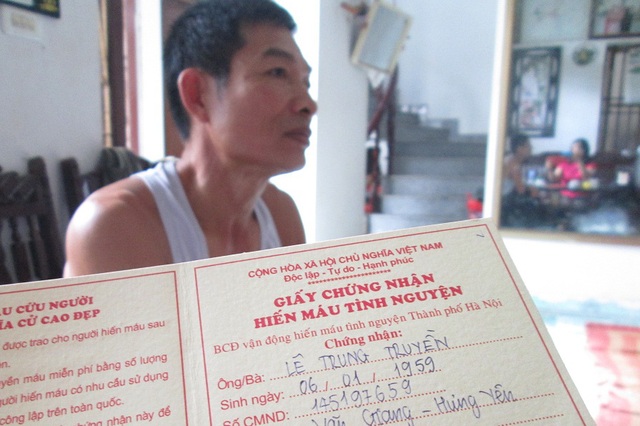 ÁU CỨU NGƯỜI
ĨA CỬ CAO ĐẸP
được trao cho người hiến máu sau
uyền máu miễn phí bằng số lượng
người hiến máu có nhu cầu sử dụng
công lập trên toàn quốc.
nhận này để
CỘNG HÒA XÃ HỘI CHỦ NGHĨA VIỆT NAM
Độc lập - Tự do - Hạnh phúc
GIẤY CHỨNG NHẬN
HIẾN MÁU TÌNH NGUYỆN
BCĐ vận động hiến máu tình nguyện Thành phố Hà Nội
Chứng nhận:
Ông/Bà: LÊ TRUNG TRUYỀN
Sinh ngày: 06 / 01 / 1959
Số CMND: 145197659
Văn Giang - Hưng Yên